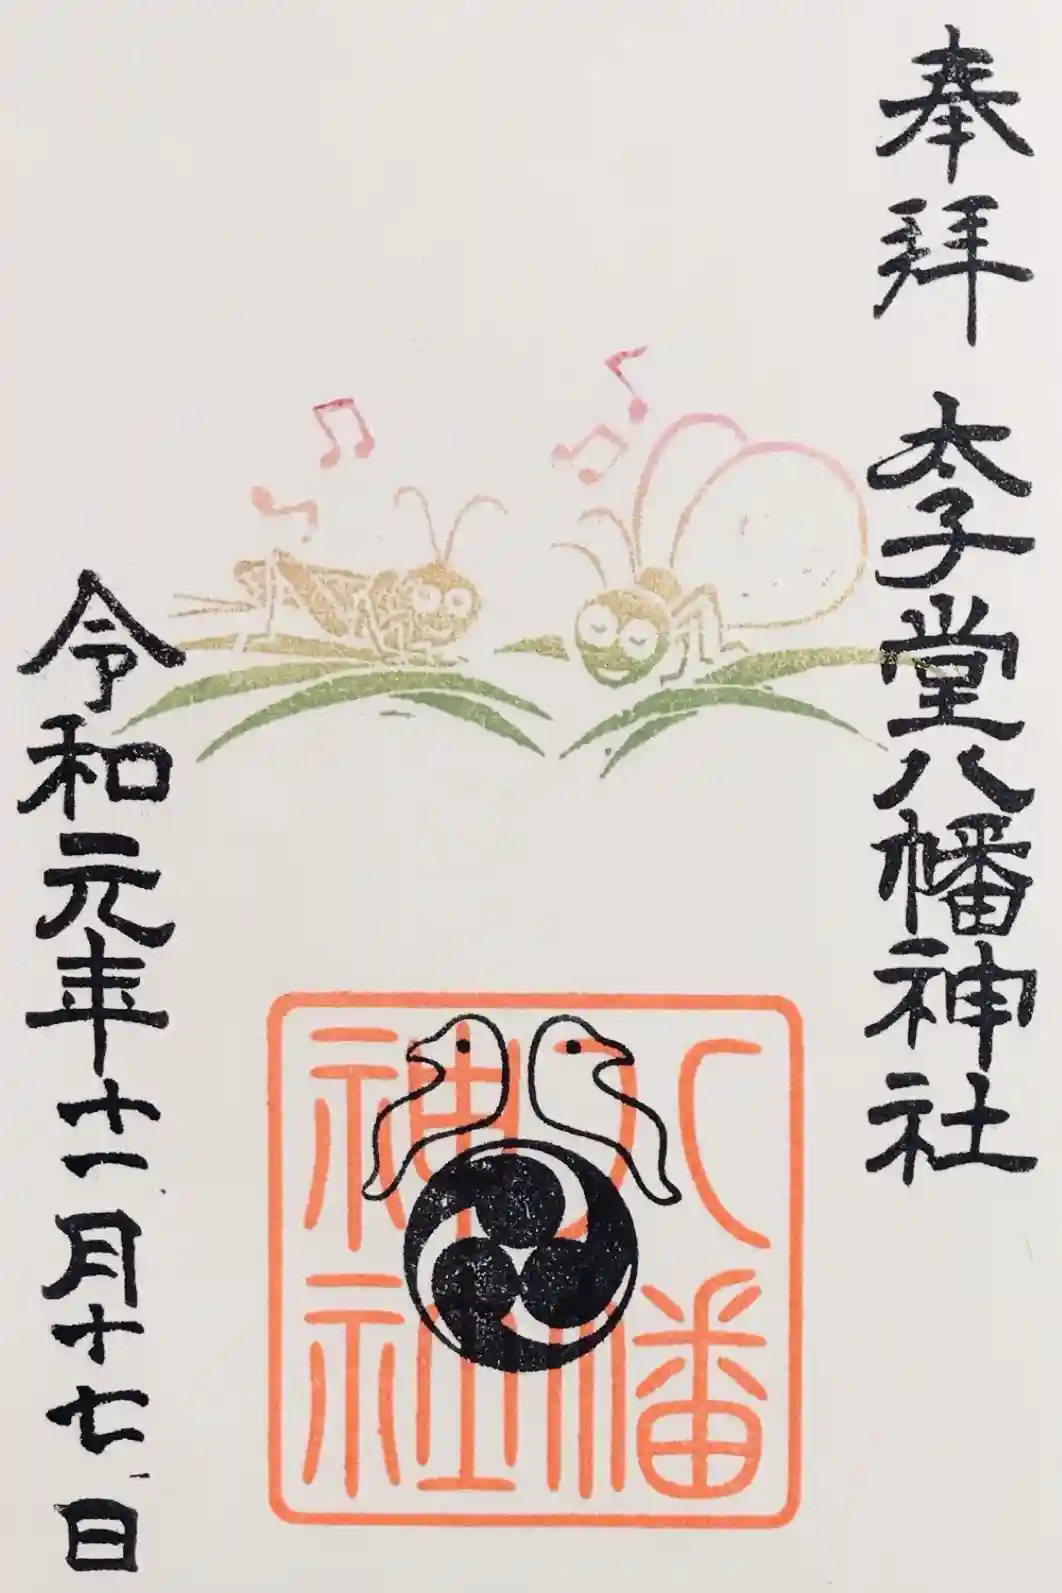 奉拝
太子堂八幡神社
八幡
神社
令和元年十一月十七日